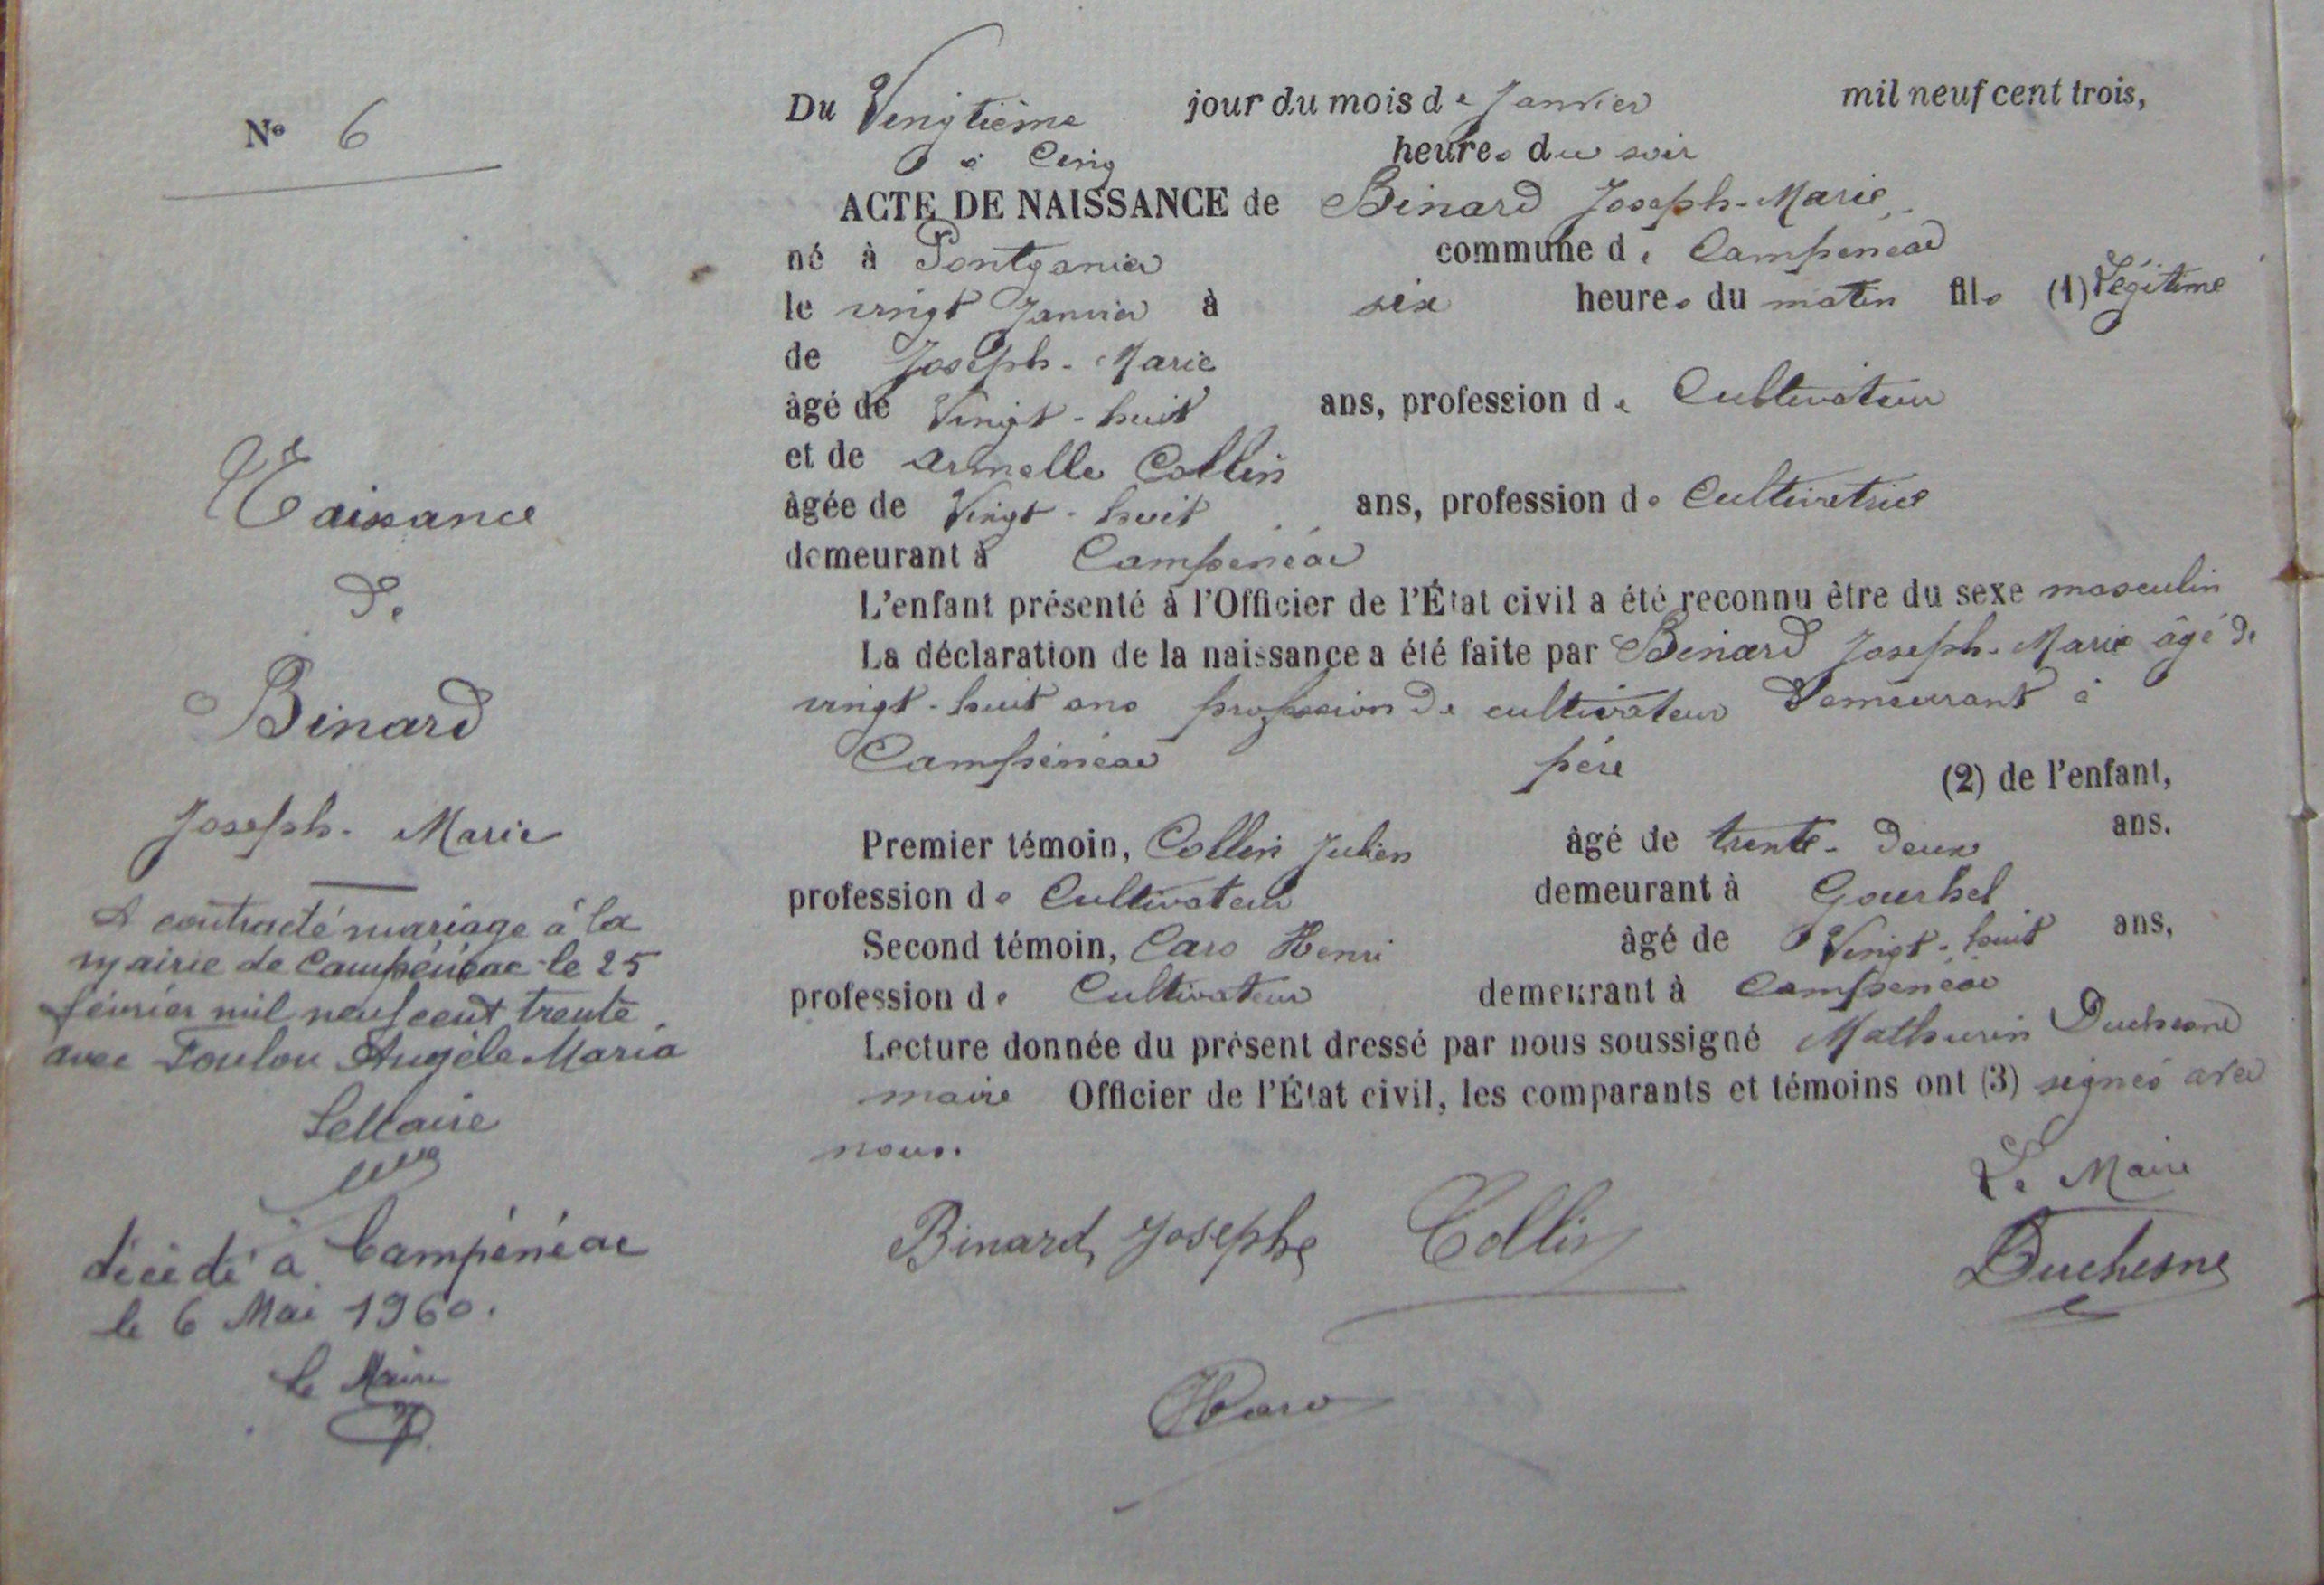 N° 6
Naissance
De
Binard
Joseph-Marie
A contracté mariage à la
mairie de Campénéac le 25
février mil neuf cent trente
avec Toulou Angèle Maria
Le Maire
décédé à Campénéac
le 6 Mai 1960.
le Maire
Du Vingtième jour du mois de Janvier mil neuf cent trois,
à Cinq heures du soir
ACTE DE NAISSANCE de Binard Joseph-Marie
né à commune de Campénéac
le vingt Janvier à six heures du matin fils (1) Légitime
de Joseph-Marie
âgé de Vingt-huit ans, profession de Cultivateur
et de Armelle Collin
âgée de Vingt-huit ans, profession de Cultivatrice
demeurant à Campénéac
L'enfant présenté à l'Officier de l'État civil a été reconnu être du sexe masculin
La déclaration de la naissance a été faite par Binard Joseph-Marie âgé de
vingt-huit ans profession de cultivateur Demeurant à
Campénéac père (2) de l'enfant,
Premier témoin, Collin Julien âgé de trente-deux ans.
profession de Cultivateur demeurant à Gourhel
Second témoin, Caro Henri âgé de Vingt-huit ans,
profession de Cultivateur demeurant à Campénéac
Lecture donnée du présent dressé par nous soussigné Mathurin Duchesne
maire Officier de l'État civil, les comparants et témoins ont (3) signés avec
nous.
Le Maire
Binard Josephe Collin Duchesne
HCaro